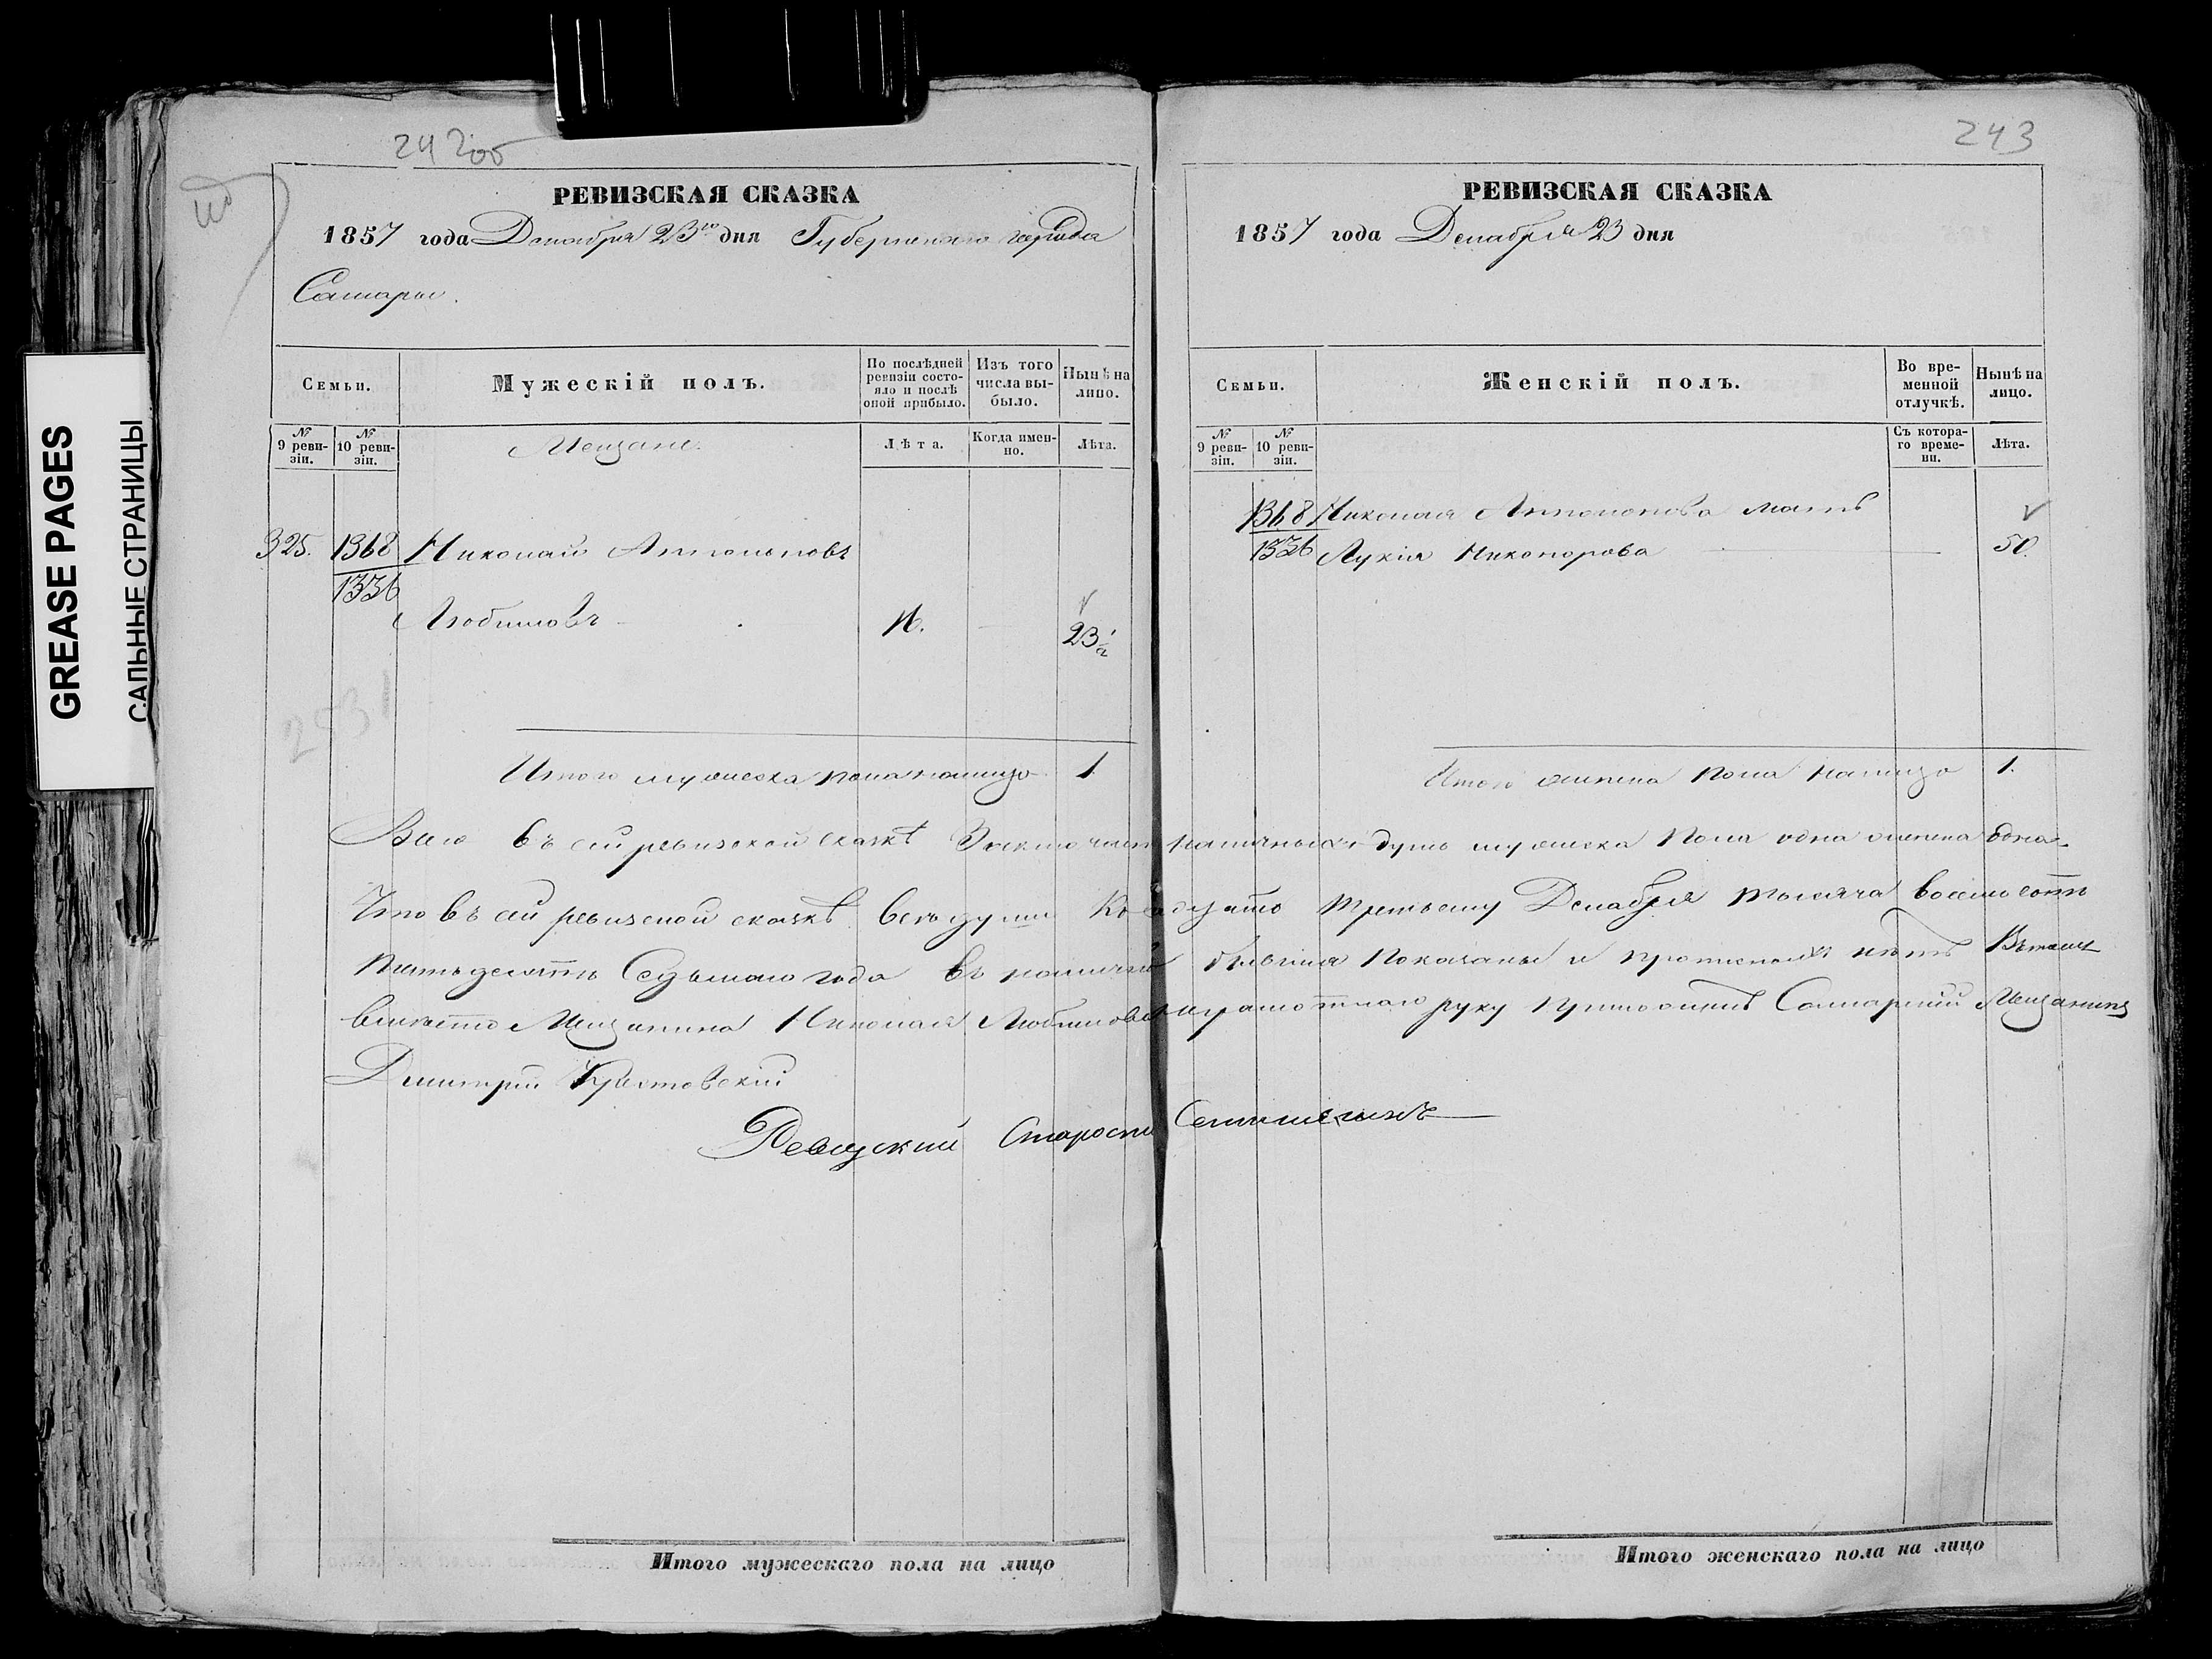 242об
РЕВИЗСКАЯ СКАЗКА
1857 года Декабря 23го дня Губернскаго города
Самары.
Семьи.
Мужескій полъ.
По послѣдней ревизіи состояло и послѣ оной прибыло.
Изъ того числа выбыло.
Нынѣ на лицо.
№ 9 ревизіи.
№ 10 ревизіи.
Мещане.
Лѣта.
Когда именно.
Лѣта.
325. 1368 Николай Антоновъ
1336
Любимовъ 16. — 23½
Итого мужеска пола налицо 1
243
РЕВИЗСКАЯ СКАЗКА
1857 года Декабря 23 дня
Семьи.
Женскій полъ.
Во временной отлучкѣ.
Нынѣ на лицо.
№ 9 ревизіи.
№ 10 ревизіи.
Съ котораго времени.
Лѣта.
1368 Николая мать
1336 Лукія Никонорова — 50
Итого женска пола налицо 1.
Всего въ сей ревизской сказкѣ наличныхъ душъ мужеска пола одна женска одна
Что въ сей ревизской сказкѣ всѣ души Къ двадцать третьему Декабря тысяча восемсотъ
пятьдесятъ Седьмаго года въ наличіи бывшія показаны и нѣтъ Въ томъ
вмѣсто Мещанина Николая Любимова неграмотнаго руку приложилъ Самарскій Мещанинъ
Дмитрій
Старосты
Итого мужескаго пола на лицо
Итого женскаго пола на лицо
GREASE PAGES
САЛЬНЫЕ СТРАНИЦЫ